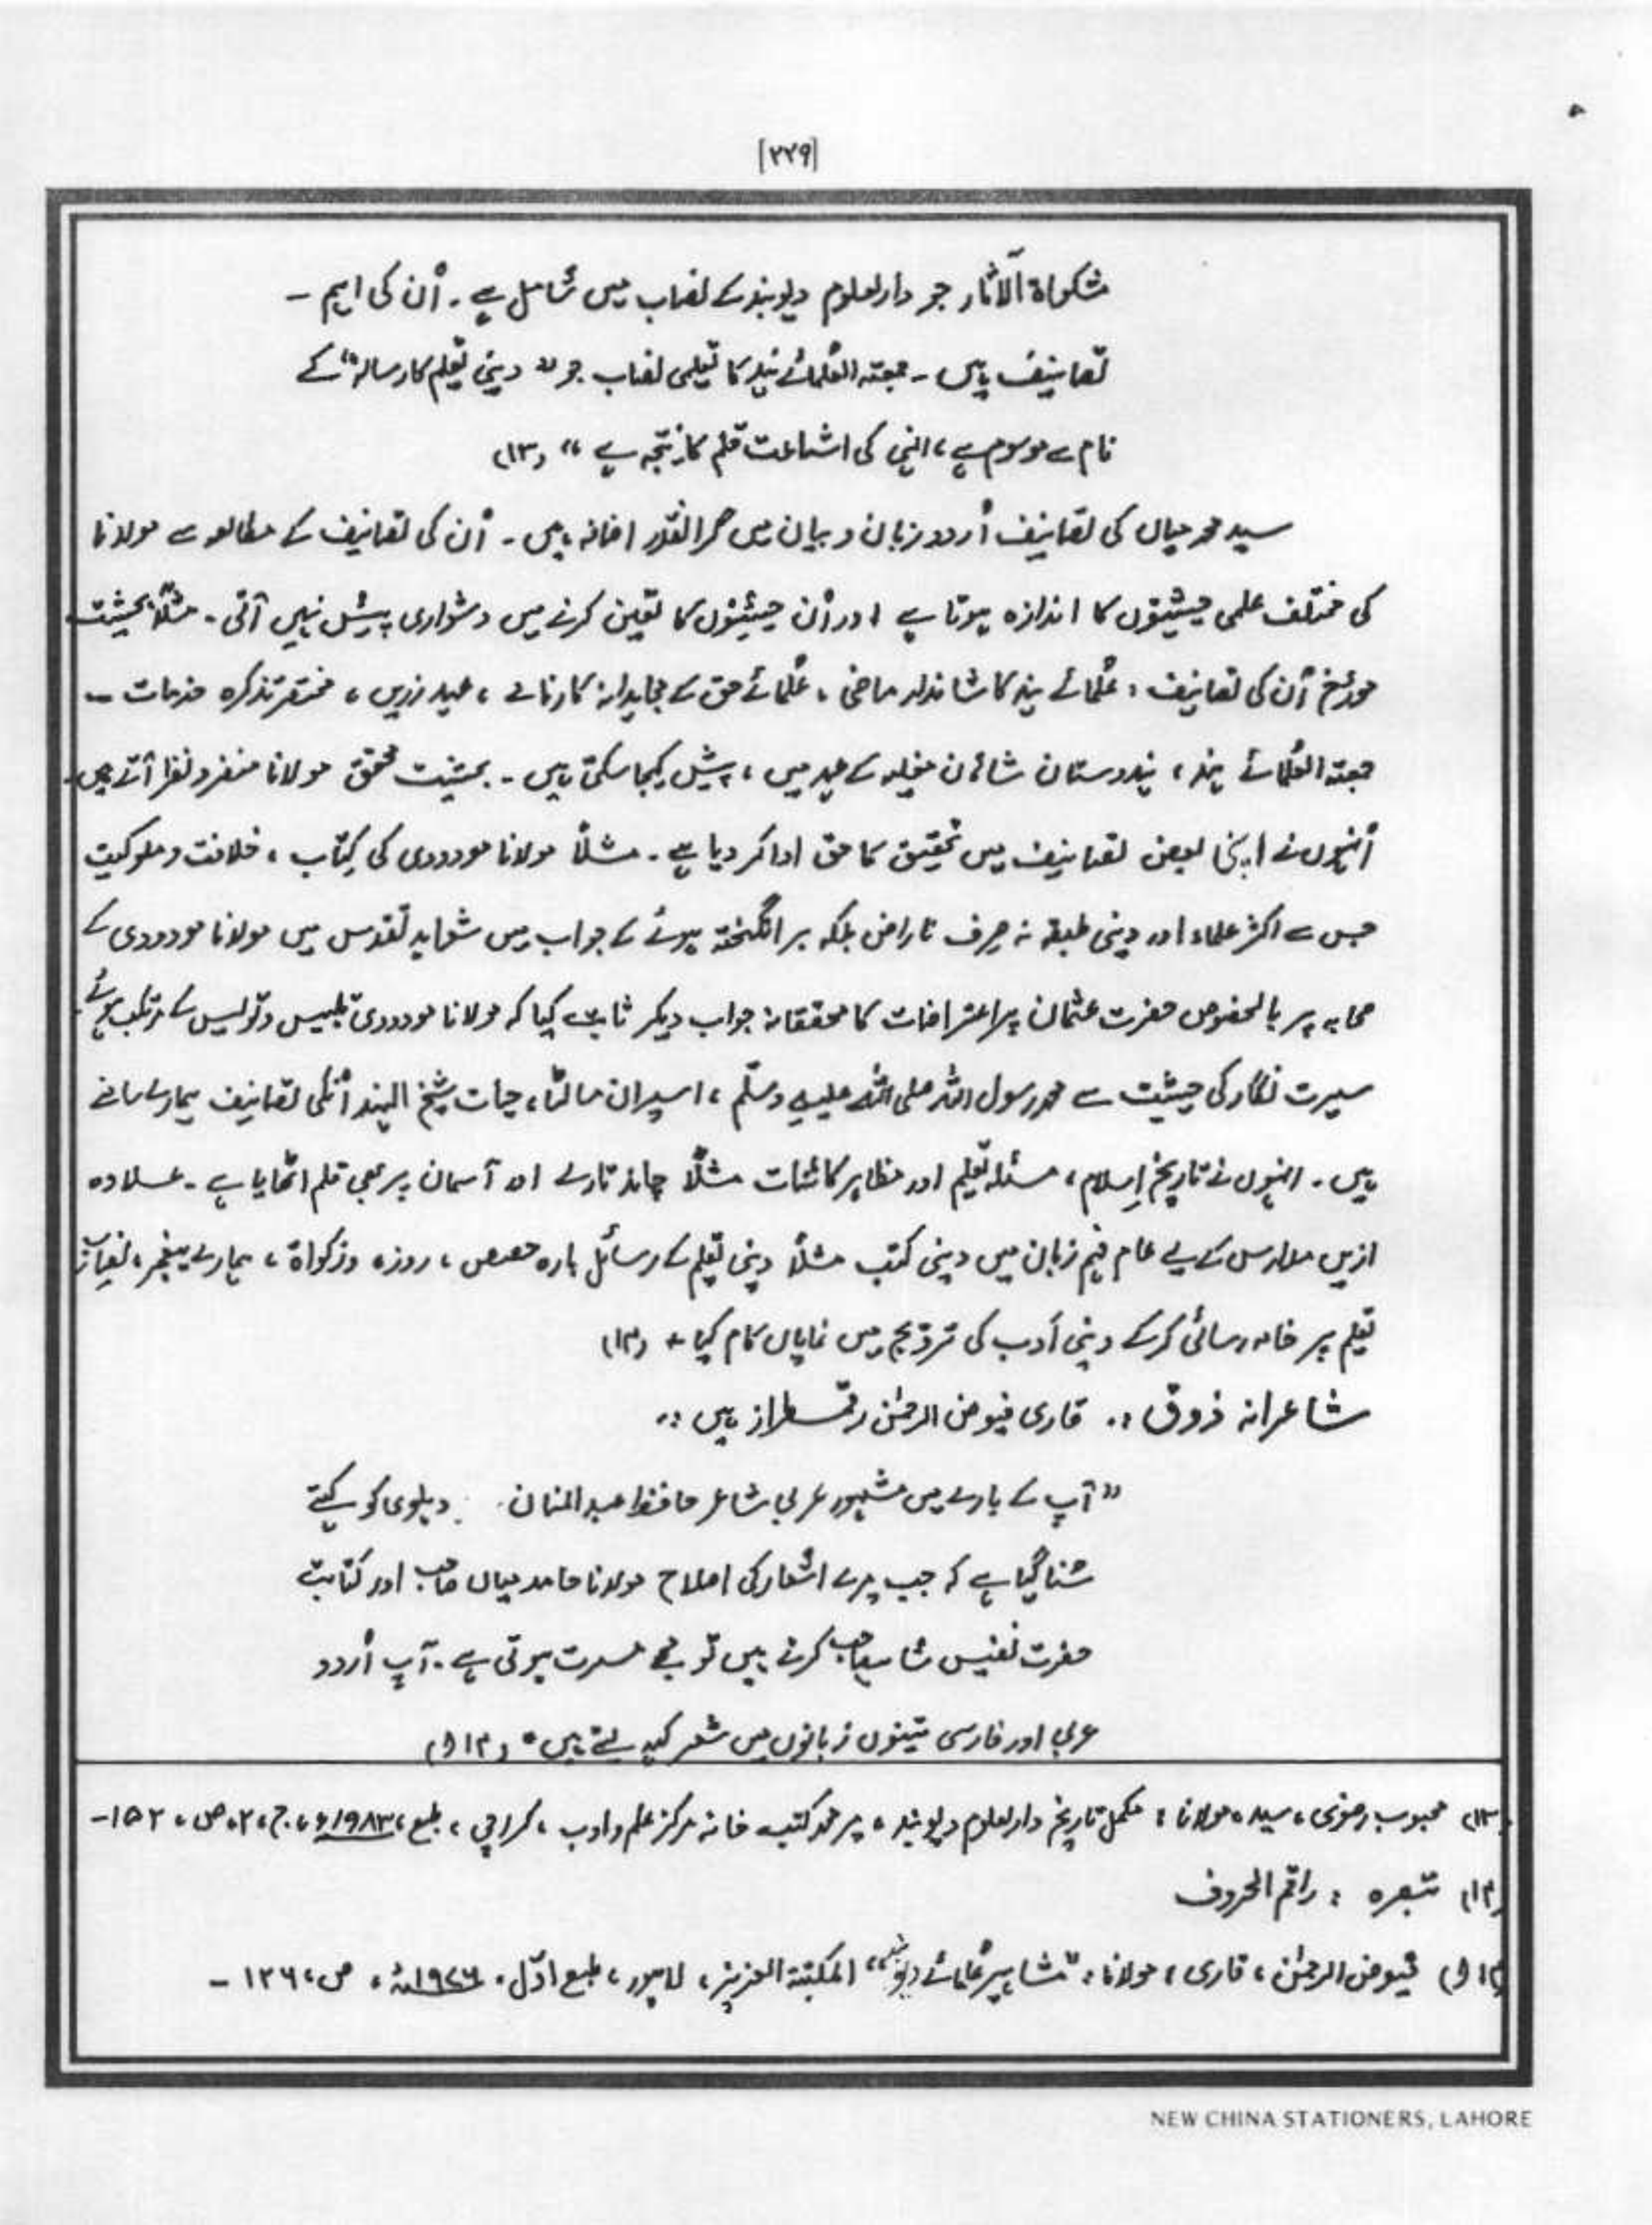 [۲۲۹]
مشکواۃ الآثار جو دارالعلوم دیوبند کے نصاب میں شامل ہے۔ اُن کی اہم -
تصانیف ہیں - جمعتہ العُلمائے ہند کا تعلیمی نصاب جو " دینی تعلیم کا رسالہ" کے
نام سے موسوم ہے، انہی کی اشاعت قلم کا نتیجہ ہے " (۱۳)
سید محمد میاں کی تصانیف اُردو زبان و بیان میں گرانقدر اضافہ ہیں۔ اُن کی تصانیف کے مطالعہ سے مولانا
کی مختلف علمی حیثیتوں کا اندازہ ہوتا ہے اور اُن حیثیتوں کا تعین کرنے میں دشواری پیش نہیں آتی۔ مثلاً بحیثیت
مورّخ اُن کی تصانیف : عُلمائے ہند کا شاندار ماضی ، عُلمائے حق کے مجاہدانہ کارنامے ، عہد زریں ، مختصر تذکرہ خدمات -
جمعتہ العُلمائے ہند ، ہندوستان شاہان مغلیہ کے عہد میں ، پیش کیجا سکتی ہیں۔ بحیثیت محقق مولانا منفرد نظر آتے ہیں۔
اُنہوں نے اپنی بعض تصانیف میں تحقیق کا حق ادا کر دیا ہے۔ مثلاً مولانا مودودی کی کتاب ، خلافت و ملوکیت
جس سے اکثر علماء اور دینی طبقہ نہ صرف ناراض بلکہ برانگیختہ ہوئے کے جواب میں شواہد تقدس میں مولانا مودودی کے
صحابہ پر بالخصوص حضرت عثمان پر اعتراضات کا محققانہ جواب دیکر ثابت کیا کہ مولانا مودودی تلبیس و تدلیس کے مرتکب ہوئے۔
سیرت نگار کی حیثیت سے محمد رسول اللہ صلی اللہ علیہ وسلّم ، اسیران مالٹا ، حیات شیخ الہند اُنکی تصانیف ہمارے سامنے
ہیں۔ انہوں نے تاریخ اِسلام ، مسئلہ تعلیم اور مظاہر کائنات مثلاً چاند تارے اور آسمان پر بھی قلم اٹھایا ہے۔ علاوہ
ازیں مدارس کے لیے عام فہم زبان میں دینی کتب مثلاً دینی تعلیم کے رسائل بارہ حصص ، روزہ و زکواۃ ، ہمارے پیغمبر ، نصاب
تعلیم پر خامہ رسائی کر کے دینی اَدب کی ترویج میں نمایاں کام کیا + (۱۴)
شاعرانہ ذوق :. قاری فیوض الرحمٰن رقمطراز ہیں :.
" آپ کے بارے میں مشہور عربی شاعر حافظ عبدالمنان دہلوی کو کہتے
سُنا گیا ہے کہ جب میرے اشعار کی اصلاح مولانا حامد میاں صاحب اور کتابت
حضرت نفیس شاہ صاحب کرتے ہیں تو مجھے مسرت ہوتی ہے۔ آپ اُردو
عربی اور فارسی تینوں زبانوں میں شعر کہہ لیتے ہیں " (۱۴ و)
(۱۳) محبوب رضوی ، سید ، مولانا : مکمل تاریخ دارالعلوم دیوبند ، میر محمد کتب خانہ مرکز علم و ادب ، کراچی ، طبع ، ۱۹۸۳ء ، ج ، ۲ ، ص ، ۱۵۲-
(۱۴) تبصرہ : راقم الحروف
(۱۴ و) فیوض الرحمٰن ، قاری ، مولانا : "مشاہیر عُلمائے دیوبند" المکتبۃ العزیز ، لاہور ، طبع ادّل ، ۱۹۷۶ء ، ص ، ۱۲۶ -
NEW CHINA STATIONERS, LAHORE